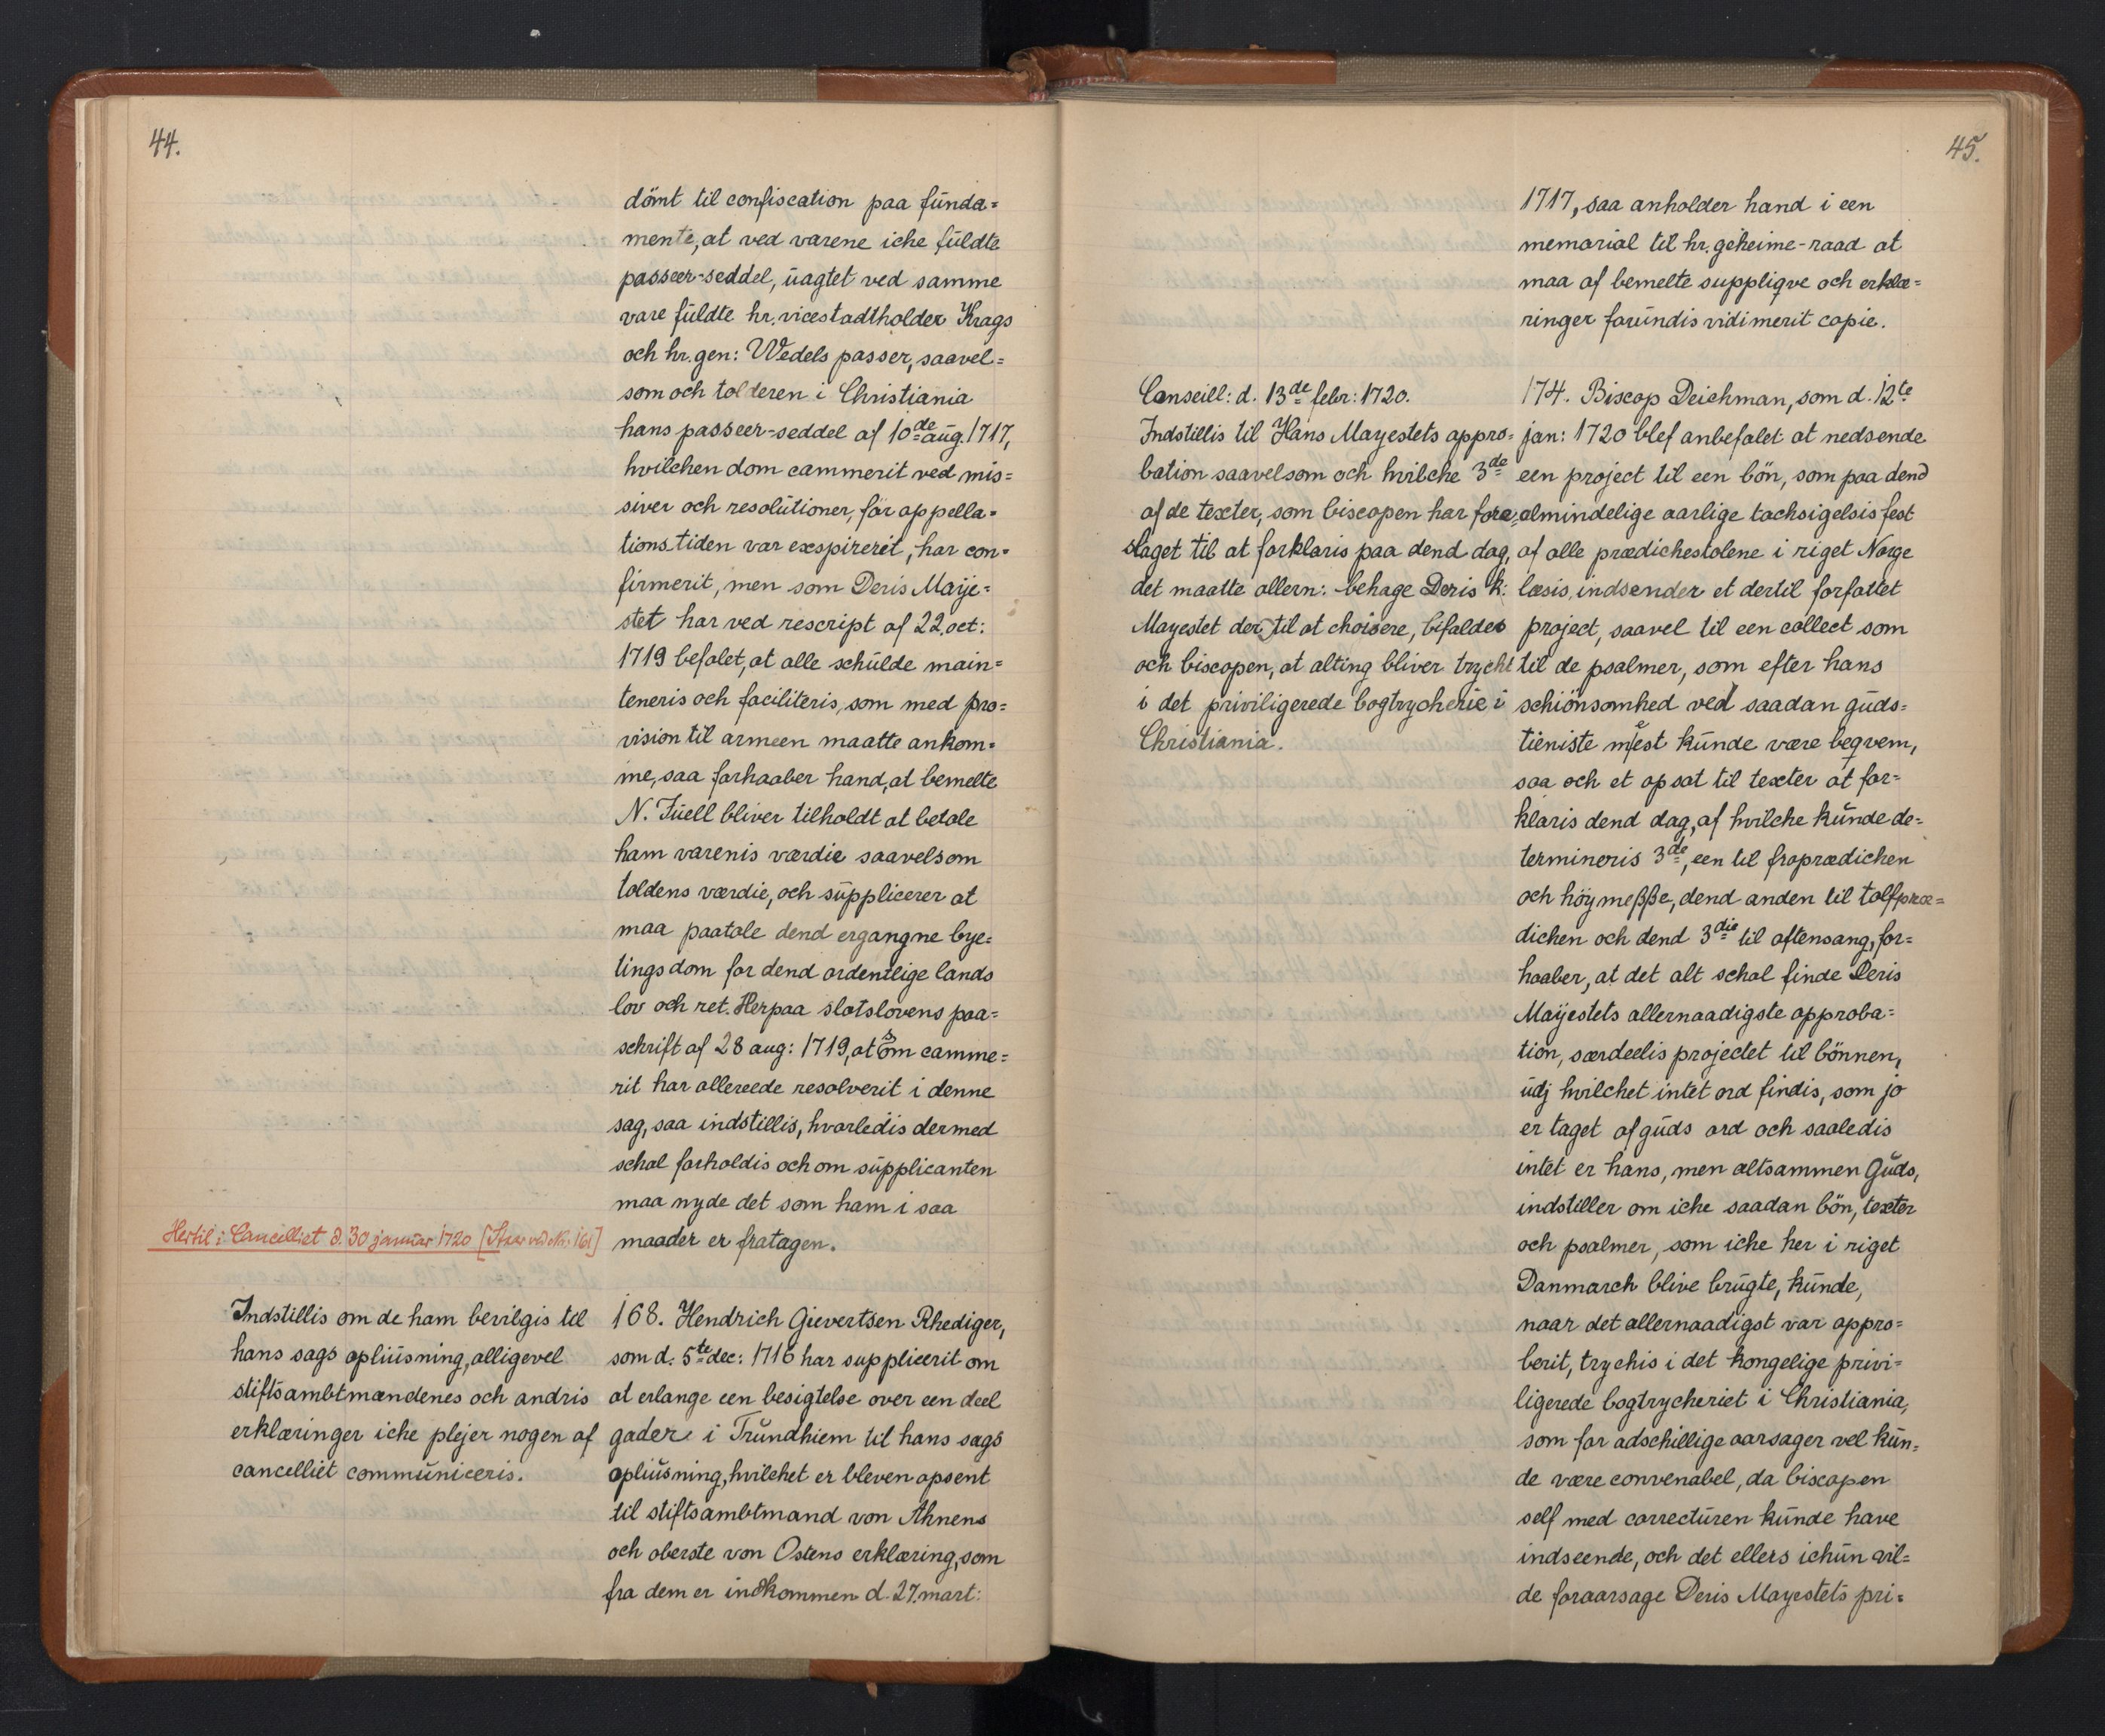 44.
dömt til confiscation paa funda=
mente, at ved varene iche fuldte
passeer-seddel, uagtet ved samme
vare fuldte hr. vicestadtholder Krags
och hr. gen: Wedels passer, saavel=
som och tolderen i Christiania
hans passeer-seddel af 10de aug. 1717,
hvilchen dom cammerit ved mis=
siver och resolutioner, før appella=
tions tiden var exspirerit, har con=
firmerit, men som Deris Maije=
stet har ved rescript af 22. oct:
1719 befalet, at alle schulde main=
teneris och faciliteris, som med pro=
vision til armeen maatte ankom=
me, saa forhaaber hand, at bemelte
N. Juell bliver tilholdt at betale
ham varenis værdie saavelsom
toldens værdie, och supplicerer at
maa paatale dend ergangne bye=
tings dom for dend ordentlige lands
lov och ret. Herpaa slotslovens paa=
schrift af 28 aug: 1719, at som camme=
rit har allereede resolverit i denne
sag, saa indstillis, hvorledis dermed
schal forholdis och om supplicanten
maa nyde det som ham i saa
maader er fratagen.
Hertil: Cancelliet d. 30 januar 1720 [Staar ved Nr. 161]
Indstillis om de ham bevilgis til
hans sags opliusning, alligevel
stiftsambtmændenes och andris
erklæringer iche plejer nogen af
cancelliet communiceris.
168. Hendrich Gievertsen Rhediger,
som d. 5te dec: 1716 har supplicerit om
at erlange een besigtelse over een deel
gader i Trundhiem til hans sags
opliusning, hvilchet er bleven opsent
til stiftsambtmand von Ahnens
och oberste von Ostens erklæring, som
fra dem er indkommen d. 27. mart:
45.
1717, saa anholder hand i een
memorial til hr. geheime-raad at
maa af bemelte suppliqve och erklæ=
ringer forundis vidimerit copie.
Conseill: d. 13de febr: 1720.
Indstillis til Hans Mayestets appro=
bation saavelsom och hvilche 3de
af de texter, som biscopen har fore=
slaget til at forklaris paa dend dag,
det maatte allern: behage Deris k:
Mayestet der til at choisere, bifaldes
och biscopen, at alting bliver trycht
i det priviligerede bogtrycherie i
Christiania.
174. Biscop Deichman, som d. 12te
jan: 1720 blef anbefalet at nedsende
een project til een bön, som paa dend
almindelige aarlige tachsigelsis fest
af alle prædichestolene i riget Norge
læsis, indsender et dertil forfattet
project, saavel til een collect som
til de psalmer, som efter hans
schiönsomhed ved saadan guds=
tieniste meest kunde være beqvem,
saa och et opsat til texter at for=
klaris dend dag, af hvilche kunde de=
termineris 3de, een til froprædichen
och höymeßße, dend anden til tolfpræ=
dichen och dend 3die til aftensang, for=
haaber, at det alt schal finde Deris
Mayestets allernaadigste approba=
tion, særdeelis projectet til bönnen,
udj hvilchet intet ord findis, som jo
er taget af guds ord och saaledis
intet er hans, men altsammen Guds,
indstiller om iche saadan bön, texter
och psalmer, som iche her i riget
Danmarch blive brugte, kunde,
naar det allernaadigst var appro=
berit, trychis i det kongelige privi=
ligerede bogtrycheriet i Christiania,
som for adschillige aarsager vel kun=
de være convenabel, da biscopen
self med correcturen kunde have
indseende, och det ellers ichun vil=
de foraarsage Deris Mayestets pri=